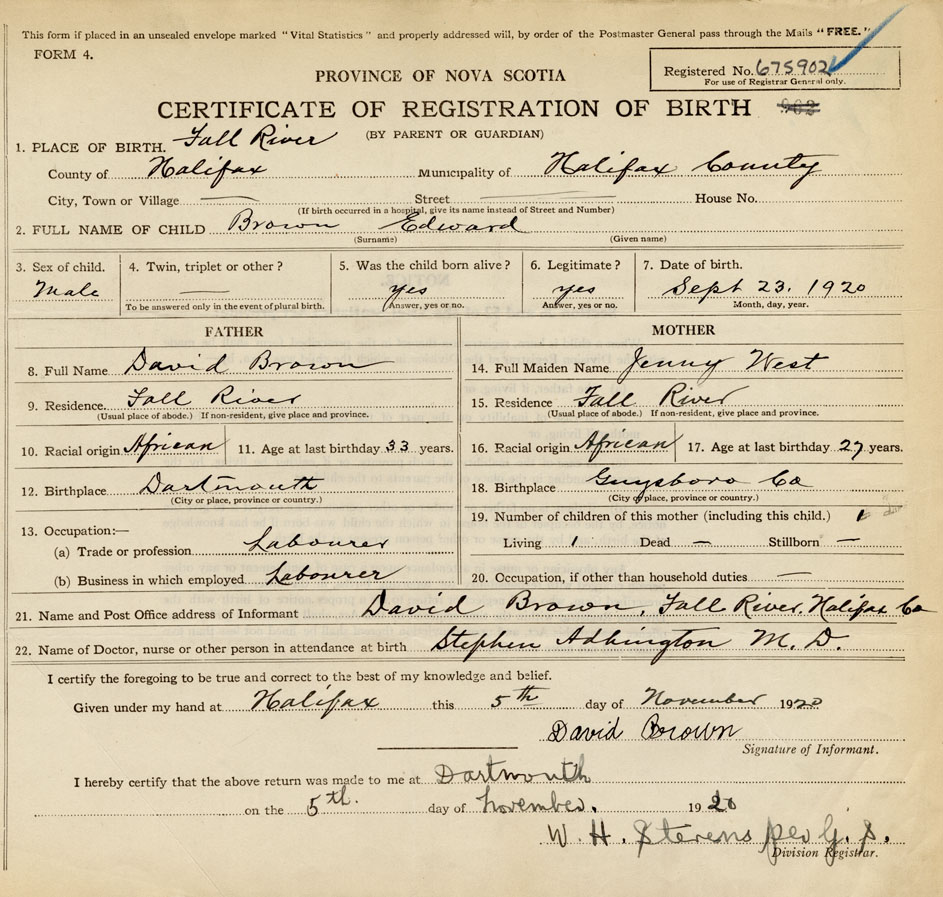 This form if placed in an unsealed envelope marked "Vital Statistics" and properly addressed will, by order of the Postmaster General pass through the Mails "FREE."
FORM 4.
Registered No. 675902
For use of Registrar General only.
PROVINCE OF NOVA SCOTIA
CERTIFICATE OF REGISTRATION OF BIRTH
(BY PARENT OR GUARDIAN)
1. PLACE OF BIRTH. Fall River
County of Halifax Municipality of Halifax County
City, Town or Village Street House No.
(If birth occurred in a hospital, give its name instead of Street and Number)
2. FULL NAME OF CHILD Brown Edward
(Surname) (Given name)
3. Sex of child. 4. Twin, triplet or other? 5. Was the child born alive? 6. Legitimate? 7. Date of birth.
Male — yes yes Sept 23. 1920
To be answered only in the event of plural birth. Answer, yes or no. Answer, yes or no. Month, day, year.
FATHER
8. Full Name David Brown
9. Residence. Fall River
(Usual place of abode.) If non-resident, give place and province.
10. Racial origin African 11. Age at last birthday 33 years.
12. Birthplace Dartmouth
(City or place, province or country.)
13. Occupation:—
(a) Trade or profession Labourer
(b) Business in which employed Labourer
MOTHER
14. Full Maiden Name Jenny West
15. Residence Fall River
(Usual place of abode.) If non-resident, give place and province.
16. Racial origin African 17. Age at last birthday 27 years.
18. Birthplace Guysboro Co
(City or place, province or country.)
19. Number of children of this mother (including this child.) 1
Living 1 Dead — Stillborn —
20. Occupation, if other than household duties —
21. Name and Post Office address of Informant David Brown, Fall River, Halifax Co
22. Name of Doctor, nurse or other person in attendance at birth Stephen M. D.
I certify the foregoing to be true and correct to the best of my knowledge and belief.
Given under my hand at Halifax this 5th day of November 1920
David Brown
Signature of Informant.
I hereby certify that the above return was made to me at Dartmouth
on the 5th. day of November. 1920
W. H. Stevens per G. S.
Division Registrar.